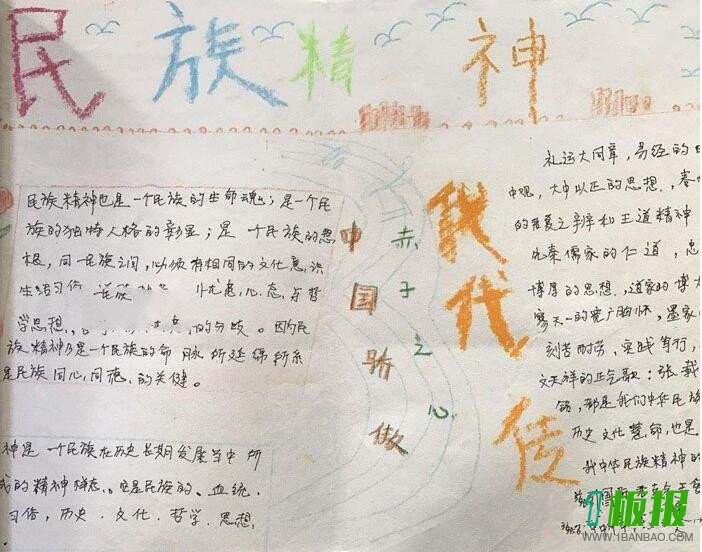 民族精神
民族精神也是一个民族的生命魂;是一个民
族的独特人格的彰显;是一个民族的思
根,同一民族之间,必须有相同的文化意识
生活习俗
学思想, 的分歧。因为民
族精神乃是一个民族的命脉所延绵所系
是民族同心,同德,的关健。
神是一个民族在历史长期发展当中所
的精神様态,它是民族的、血统.
习俗,历史.文化.哲学.思想,
中国骄傲
赤子之心
我代传
礼运大同章,易经的
中观,大中以正的思想,春
的 之 和王道精神
先秦儒家的仁道,忠
博厚的思想,道家的博大
寥天一的宽广胸怀,墨家
刻苦耐劳,实践笃行,
文天祥的正气歌:张载
铭,都是我们中华民族
历史文化慧命,也是
我中华民族精神的
1板报
WWW.1BANBAO.COM